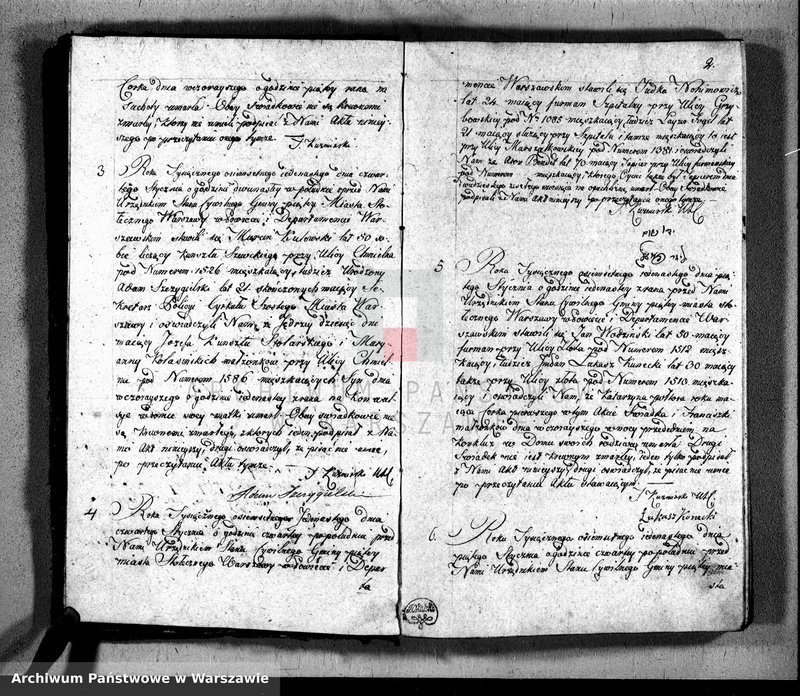 Corka dnia wczorayszego o godzinie piątey rano na
Suchoty umarła. Obay świadkowie nie są krewnemi
zmarłey, z któremi nie umieli podpisać z Nami Aktu ninieysze-
go po przeczytaniu onego
J Kuzmirski
3
Roku Tysiącznego osiemsetnego iedenastego dnia czwar-
tego Stycznia o godzinie dwunastey w południe przed Nami
Urzędnikiem Stanu Cywilnego Gminy piątey Miasta Sto-
łecznego Warszawy w powiecie i Departamencie War-
szawskim stawili się Marcin Kulewski lat 50 so-
bie liczący kunsztu Szewckiego przy Ulicy Chmielna
pod Numerem 1526 mieszkaiący tudzież Urodzony
Adam Szczygielski lat 21 skończonych maiący Se-
kretarz Policyi Cyrkułu Szóstego Miasta War-
szawy i oświadczyli Nam, że Jędrzey dziewięć dni
maiący Józefa Kunsztu Stolarskiego i Mary-
anny Kołasinskich małżonków przy Ulicy Chmiel-
na pod Numerem 1586 mieszkaiących Syn dnia
wczorayszego o godzinie iedenastey z rana na Konwul-
sye w domu swey matki umarł. Obay świadkowie nie
są krewnemi zmarłego, z których ieden podpisał z Na-
mi Akt ninieyszy, drugi oświadczył, że pisać nie umie,
po przeczytaniu Aktu
J Kuzmirski
Adam Szczygielski
4
Roku Tysiącznego osiemsetnego Iedenastego dnia
czwartego Stycznia o godzinie czwartey po południu przed
Nami Urzędnikiem Stanu Cywilnego Gminy piątey
miasta Stołecznego Warszawy w powiecie i Depar
ta
2.
mencie Warszawskim stawili się Judka Nohimowicz
lat 24 maiący furman Szpitalny przy Ulicy Grzy-
bowskiey pod No 1085 mieszkaiący tudzież
21 maiący służący przy Szpitalu i tamże mieszkaiący to iest
przy Ulicy Marszałkowskiey pod Numerem 1381 i oświadczyli
Nam że lat 70 maiący przy Ulicy
pod Numerem mieszkaiący,
umarł. Obay Świadkowie
podpisali z Nami Akt ninieyszy po przeczytaniu onego
J Kuzmirski
5
Roku Tysiącznego osiemsetnego iedenastego dnia pią-
tego Stycznia o godzinie iedenastey z rana przed Nami
Urzędnikiem Stanu Cywilnego Gminy piątey miasta sto-
łecznego Warszawy w powiecie i Departamencie War-
szawskim stawili się Jan Wodziński lat 50 maiący
furman przy Ulicy Złota pod Numerem 1512 miesz-
kaiący, tudzież Łukasz Kunecki lat 60 maiący
także przy Ulicy złota pod Numerem 1510 mieszka-
iący i oświadczyli Nam, że Katarzyna półtora roku ma-
iąca Corka pierwszego w tym Akcie Świadka i Franciszki
małżonków dnia wczorayszego w nocy przededniem na
koklusz w Domu swoich rodziców zmarła. Drugi
Świadek nie iest krewnym zmarłey, ieden tylko podpisał
z Nami Akt ninieyszy, drugi oświadczył, że pisać nie umie
po przeczytaniu Aktu stawaiącym
J Kuzmirski
Łukasz Konecki
6.
Roku Tysiącznego osiemsetnego iedenastego dnia
piątego Stycznia o godzinie czwartey po południu przed
Nami Urzędnikiem Stanu Cywilnego Gminy piątey mia
sta
ARCHIWUM PAŃSTWOWE
W WARSZAWIE
Archiwum Państwowe w Warszawie